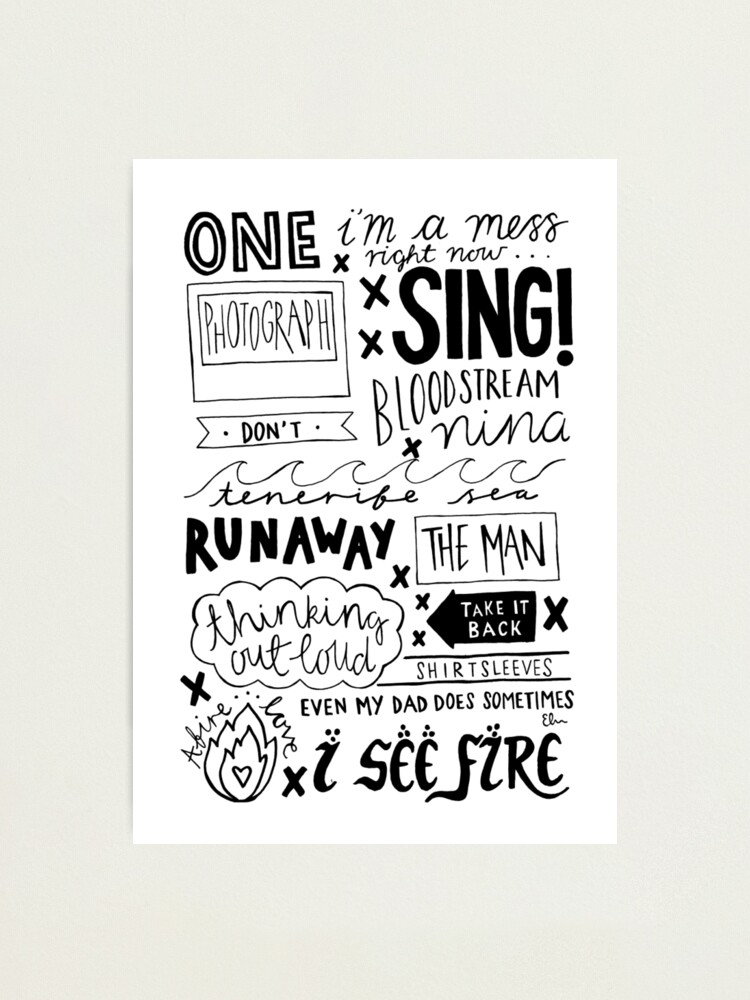 ONE
i'm a mess
right now...
PHOTOGRAPH
SING!
BLOODSTREAM
· DON'T ·
nina
tenerife sea
RUNAWAY
THE MAN
thinking
out loud
TAKE IT
BACK
SHIRTSLEEVES
Afire... love
EVEN MY DAD DOES SOMETIMES
i SËË FiRE